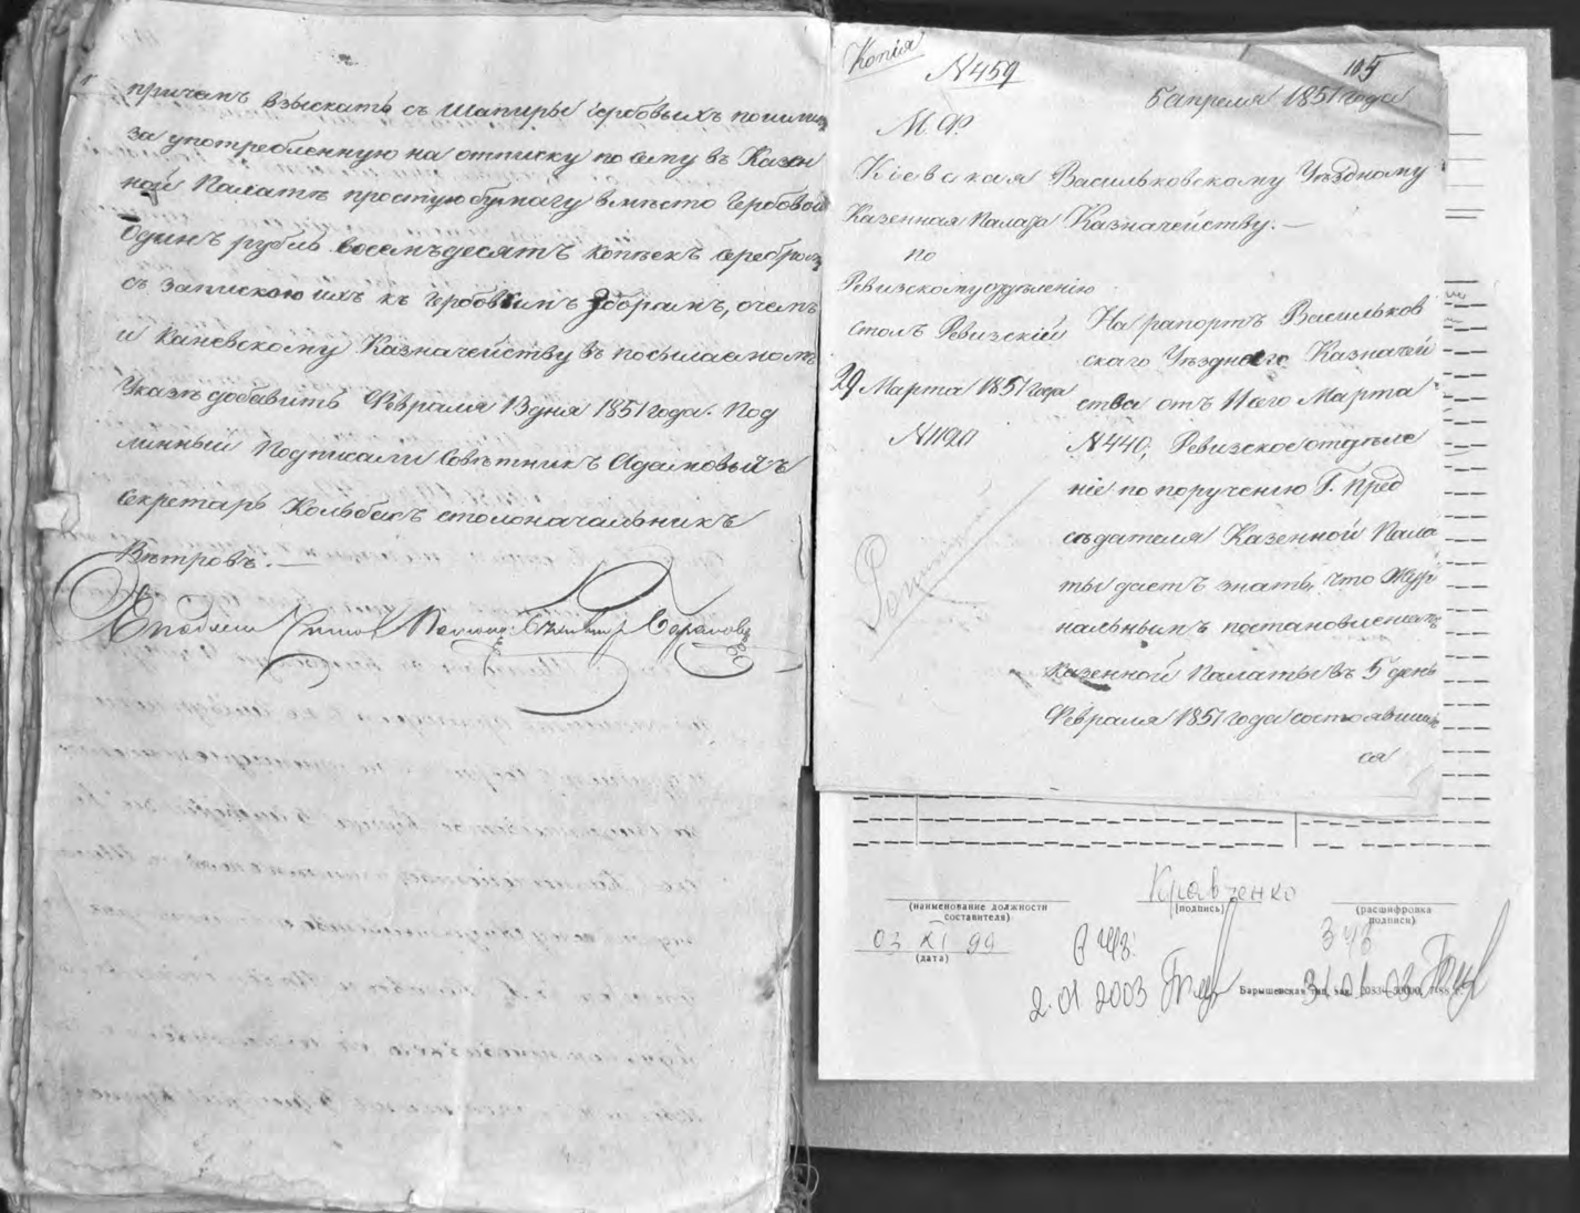 причемъ взыскать съ Шапирье гербовыхъ пошлинъ
за употребленную на отписку по сему въ Казен
ной Палатѣ простую бумагу вмѣсто гербовой
Одинъ рубль восемьдесятъ копѣекъ серебромъ
съ запискою ихъ къ гербовымъ зборамъ, о чемъ
и Каневскому Казначейству въ посылаемомъ
Указѣ добавить Февраля 13 дня 1851 года. Под
линный Подписали Совѣтникъ Адамовичъ
Секретарь Кольбекъ столоначальникъ
Вѣтровъ. —
Копія
N 459
105
5 апреля 1851 года
М. Ф.
Кіевская
Казенная Палата
по
Ревизскому отдѣленію
столъ Ревизскій
29 Марта 1851 года
N 1120
Васильковскому Уѣздному
Казначейству. —
На рапортъ Васильков
скаго Уѣзднаго Казначей
ства отъ 11 сего Марта
N 440, Ревизское отдѣле
ніе по порученію Г. Пред
сѣдателя Казенной Пала
ты даетъ знать, что Жур
нальнымъ постановленіемъ
Казенной Палаты въ 5 день
Февраля 1851 года состоявшим
ся
Кравченко
(наименование должности
составителя)
(подпись)
(расшифровка
подписи)
03 XI 99
(дата)
2.01 2003
31.01.03
Барышевская тип. зак.